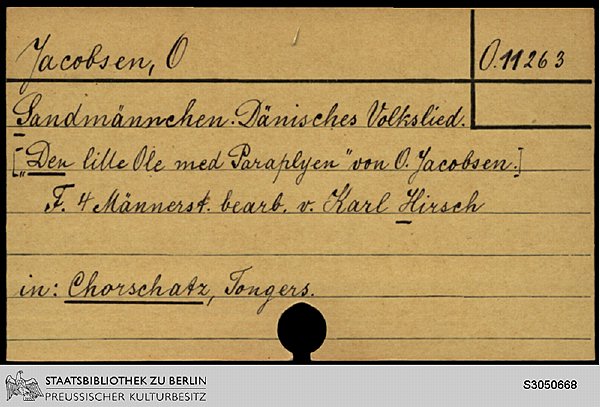 Jacobsen, O
O. 11263
Sandmännchen. Dänisches Volkslied.
["Den lille Ole med Paraplyen" von O. Jacobsen.]
F. 4 Männerst. bearb. v. Karl Hirsch
in: Chorschatz, Tongers.
STAATSBIBLIOTHEK ZU BERLIN
PREUSSISCHER KULTURBESITZ
S3050668